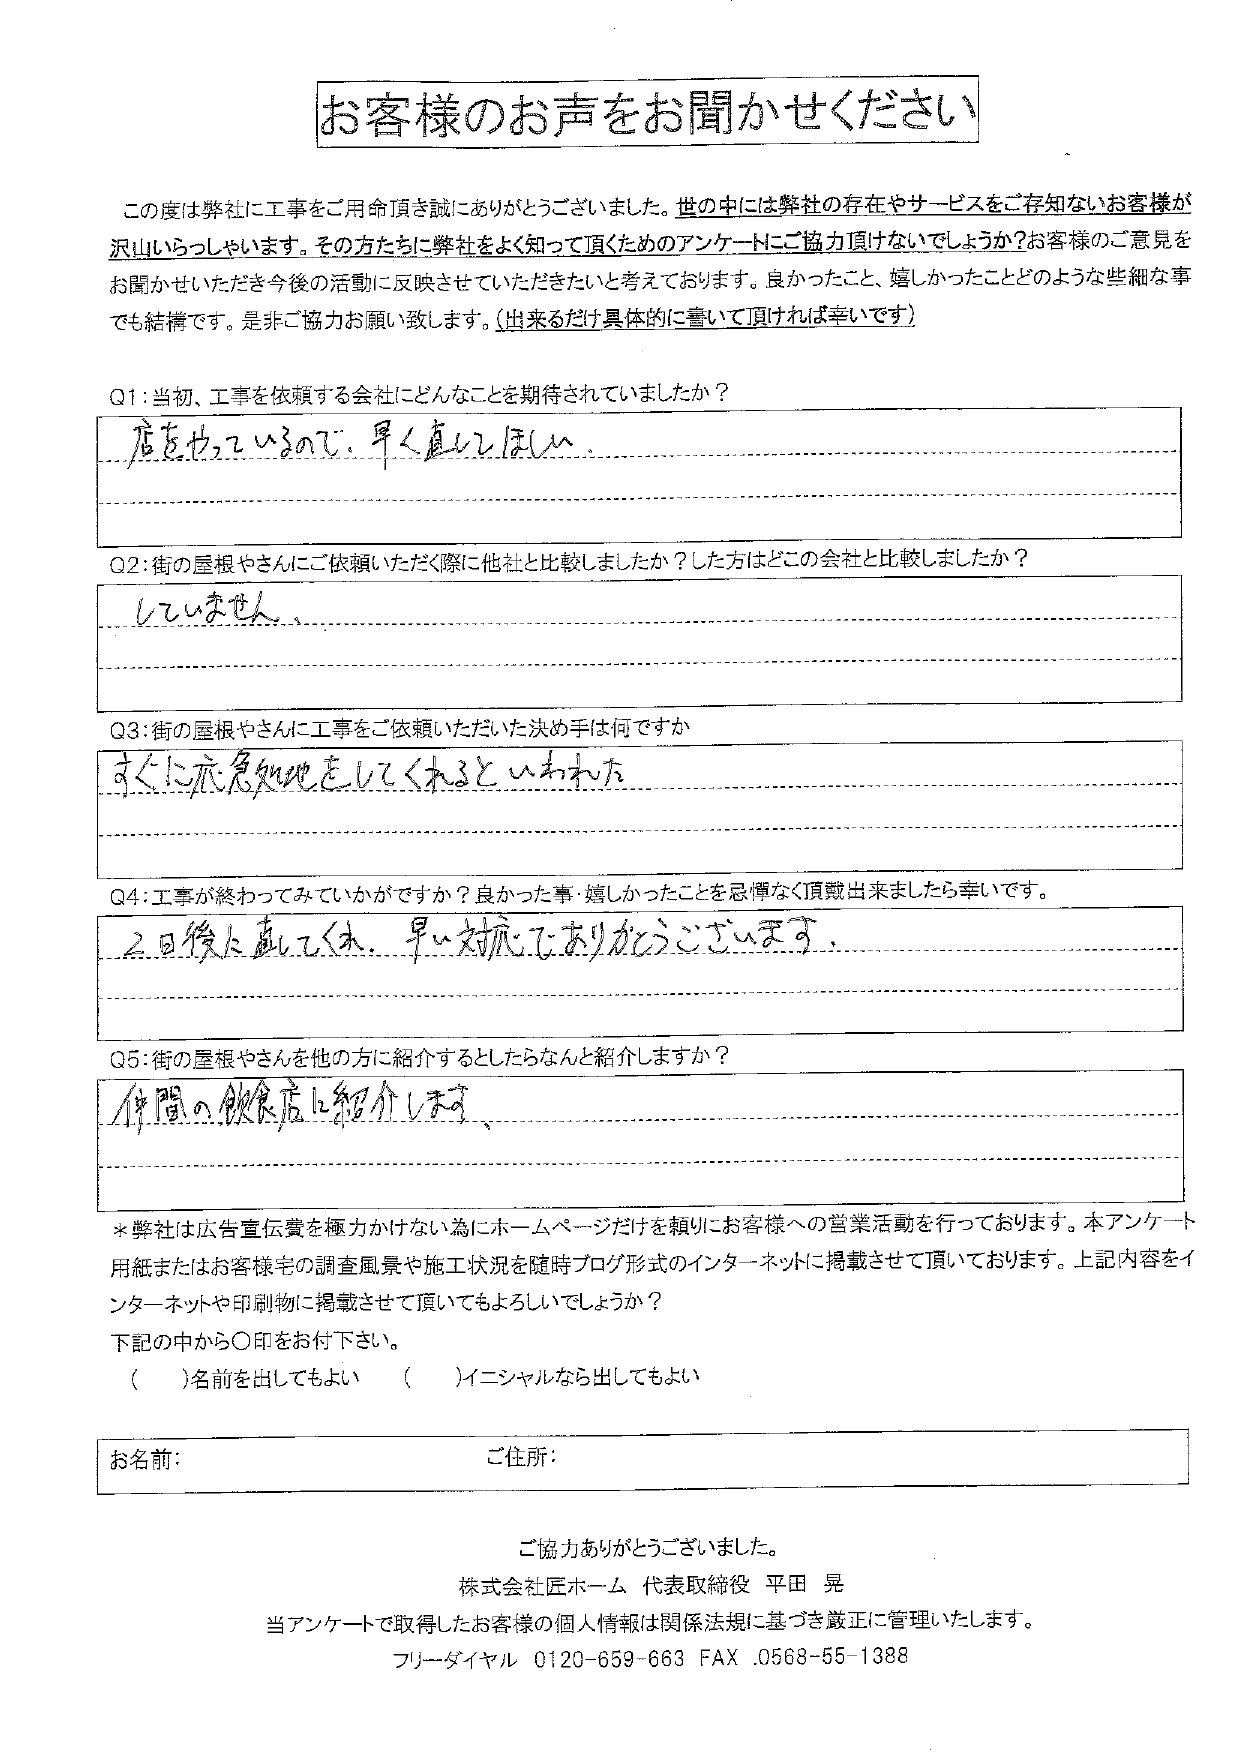 お客様のお声をお聞かせください
この度は弊社に工事をご用命頂き誠にありがとうございました。世の中には弊社の存在やサービスをご存知ないお客様が
沢山いらっしゃいます。その方たちに弊社をよく知って頂くためのアンケートにご協力頂けないでしょうか?お客様のご意見を
お聞かせいただき今後の活動に反映させていただきたいと考えております。良かったこと、嬉しかったことどのような些細な事
でも結構です。是非ご協力お願い致します。(出来るだけ具体的に書いて頂ければ幸いです)
Q1:当初、工事を依頼する会社にどんなことを期待されていましたか？
店をやっているので、早く直してほしい.
Q2:街の屋根やさんにご依頼いただく際に他社と比較しましたか？した方はどこの会社と比較しましたか？
していません、
Q3:街の屋根やさんに工事をご依頼いただいた決め手は何ですか
すぐに応急処地をしてくれるといわれた
Q4:工事が終わってみていかがですか？良かった事・嬉しかったことを忌憚なく頂戴出来ましたら幸いです。
2日後に直してくれ. 早い対応でありがとうございます.
Q5:街の屋根やさんを他の方に紹介するとしたらなんと紹介しますか？
仲間の飲食店に紹介します、
＊弊社は広告宣伝費を極力かけない為にホームページだけを頼りにお客様への営業活動を行っております。本アンケート
用紙またはお客様宅の調査風景や施工状況を随時ブログ形式のインターネットに掲載させて頂いております。上記内容をイ
ンターネットや印刷物に掲載させて頂いてもよろしいでしょうか？
下記の中から〇印をお付下さい。
(　　)名前を出してもよい　　(　　)イニシャルなら出してもよい
お名前:　　　ご住所:
ご協力ありがとうございました。
株式会社匠ホーム　代表取締役　平田　晃
当アンケートで取得したお客様の個人情報は関係法規に基づき厳正に管理いたします。
フリーダイヤル　0120-659-663 FAX .0568-55-1388